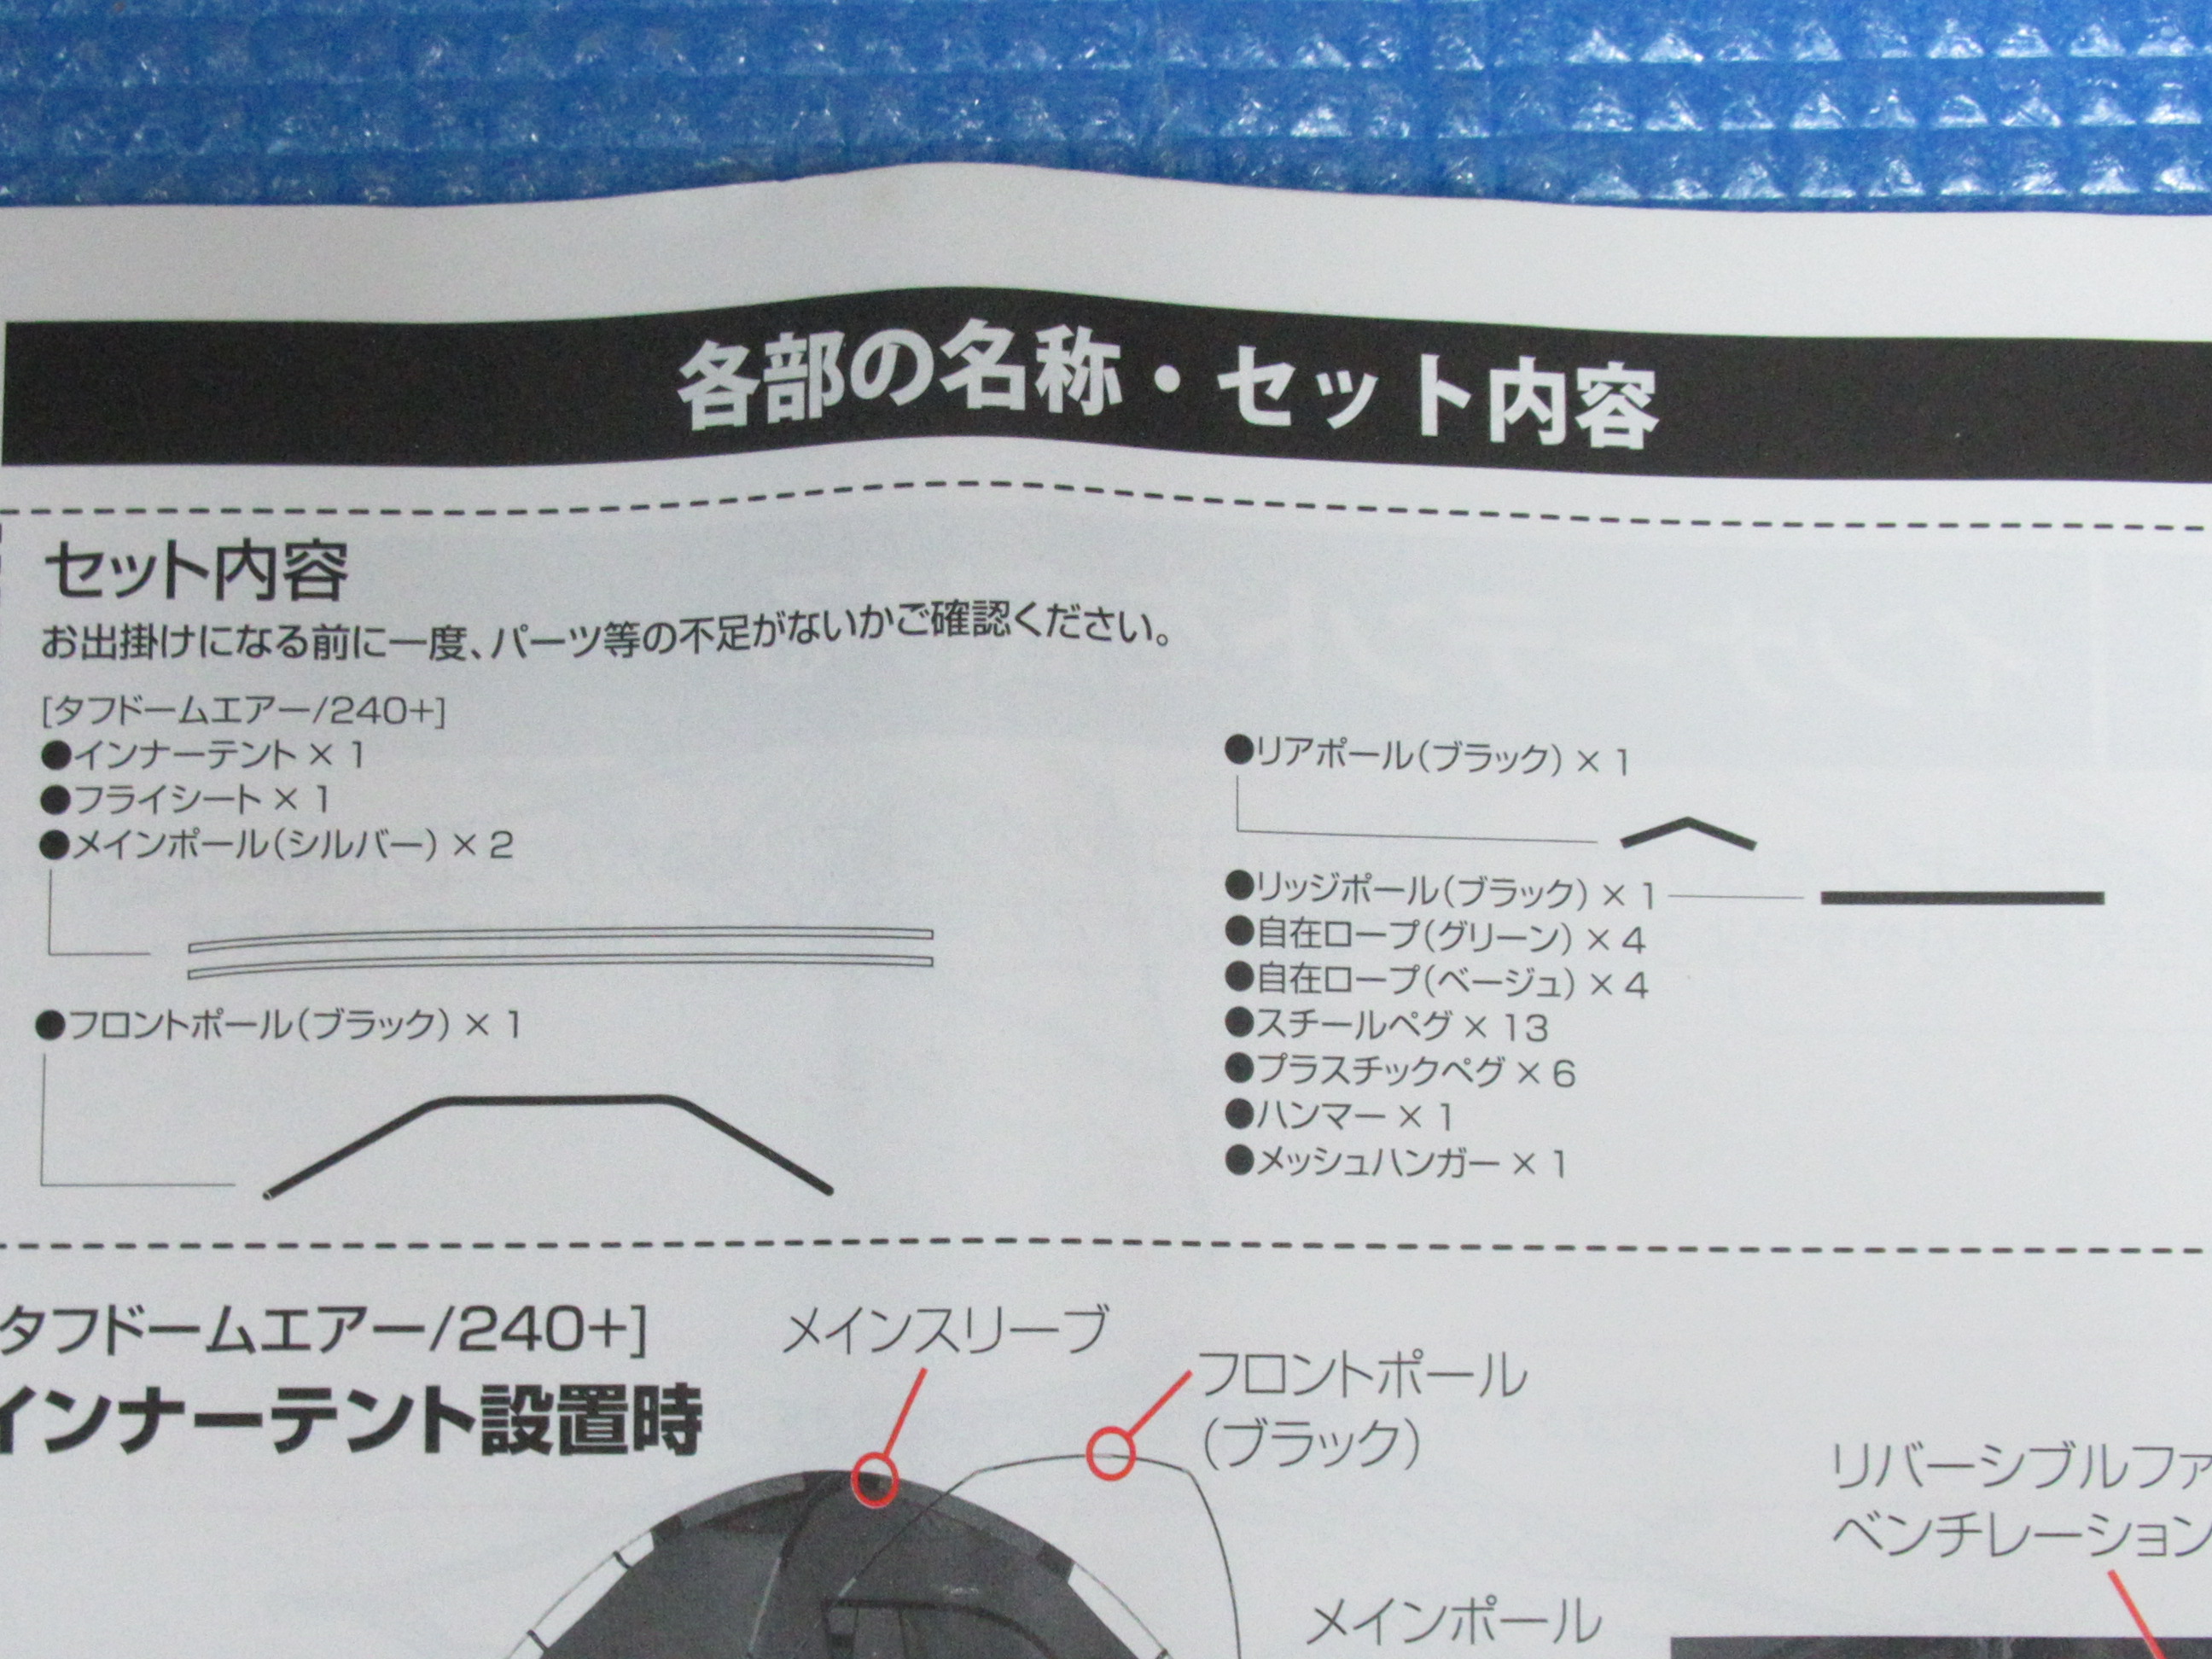 各部の名称・セット内容
セット内容
お出掛けになる前に一度、パーツ等の不足がないかご確認ください。
[タフドームエアー/240+]
●インナーテント × 1
●フライシート × 1
●メインポール(シルバー) × 2
●フロントポール(ブラック) × 1
●リアポール(ブラック) × 1
●リッジポール(ブラック) × 1
●自在ロープ(グリーン) × 4
●自在ロープ(ベージュ) × 4
●スチールペグ × 13
●プラスチックペグ × 6
●ハンマー × 1
●メッシュハンガー × 1
タフドームエアー/240+]
インナーテント設置時
メインスリーブ
フロントポール
(ブラック)
メインポール
リバーシブルファ
ベンチレーション